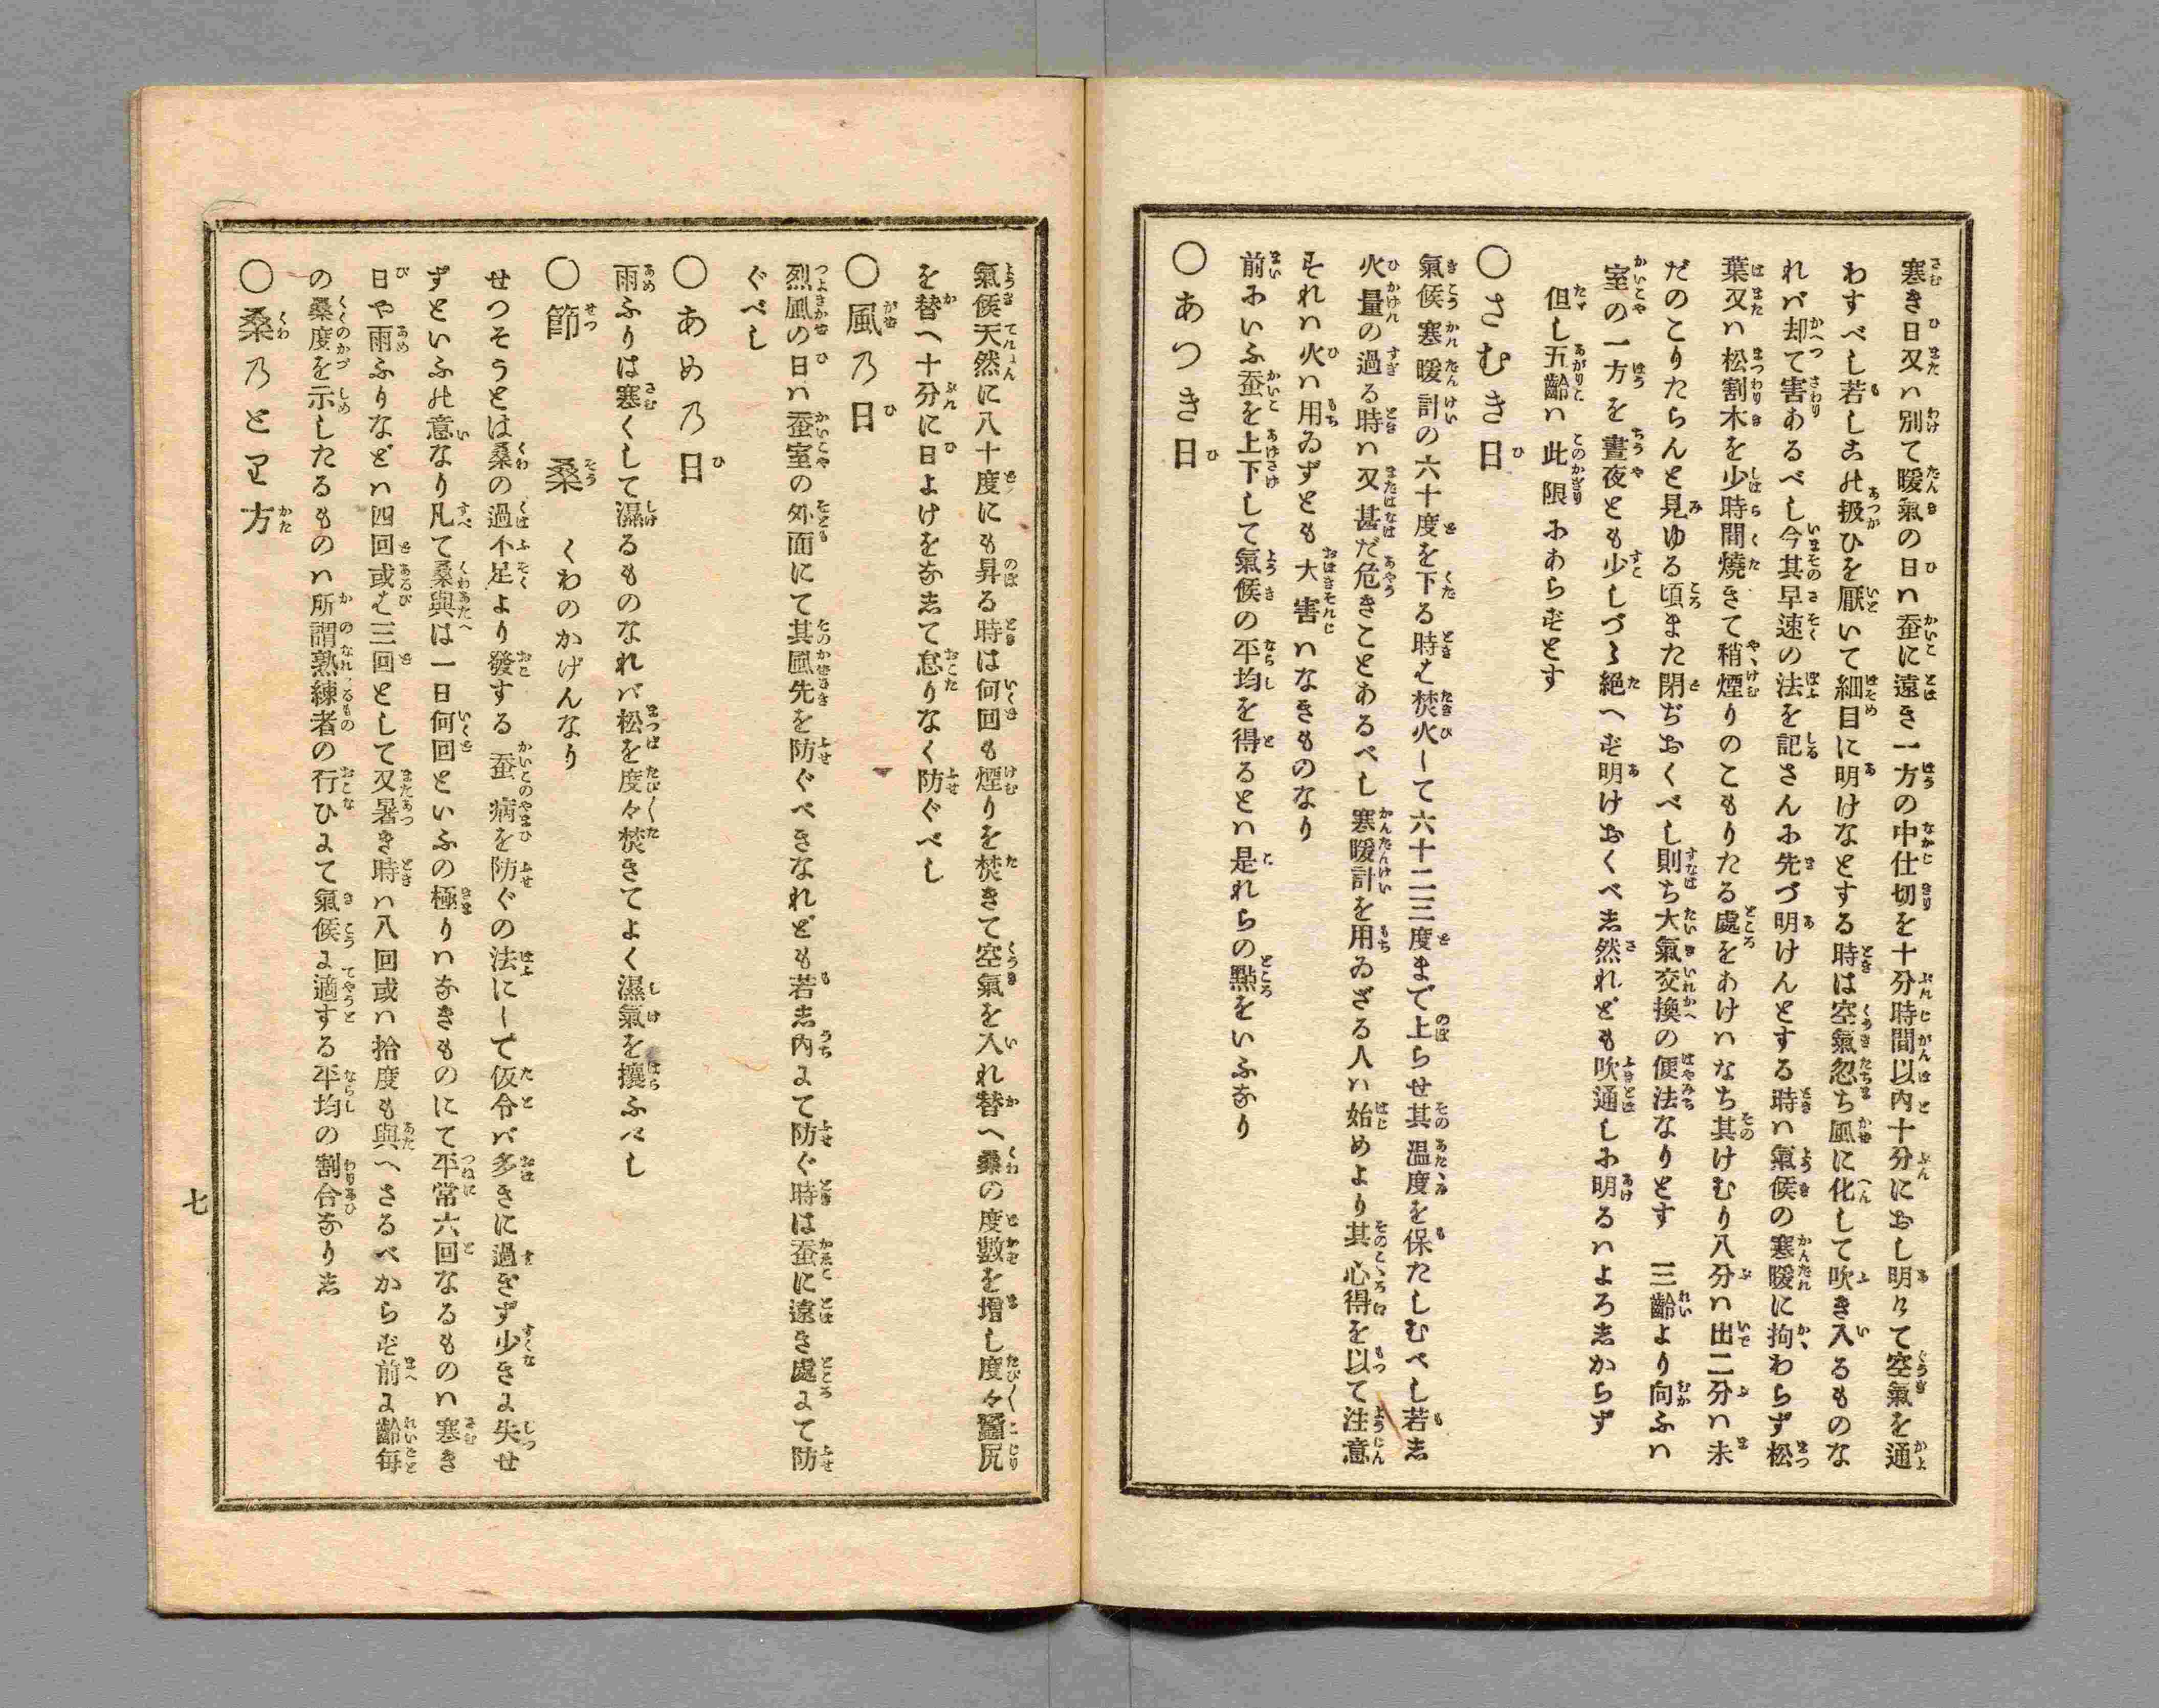 寒き日又ハ別て暖氣の日ハ蚕に遠き一方の中仕切を十分時間以内十分におし明ケて空氣を通
わすべし若し此扱ひを厭いて細目に明けなとする時は空氣忽ち風に化して吹き入るものな
れバ却て害あるべし今其早速の法を記さんに先づ明けんとする時ハ氣候の寒暖に拘わらず松
葉又ハ松割木を少時間燒きて稍煙りのこもりたる處をあけハなち其けむり八分ハ出二分ハ未
だのこりたらんと見ゆる頃また閉ぢおくべし則ち大氣交換の便法なりとす　三齡より向ふハ
室の一方を晝夜とも少しづゝ絶へず明けおくべし然れども吹通しに明るハよろしからず
但し五齡ハ此限にあらずとす
〇さむき日
氣候寒暖計の六十度を下る時は焚火して六十二三度まで上らせ其温度を保たしむべし若し
火量の過る時ハ又甚だ危きことあるべし寒暖計を用ゐざる人ハ始めより其心得を以て注意
それハ火ハ用ゐずとも大害ハなきものなり
前にいふ蚕を上下して氣候の平均を得るとハ是れらの點をいふなり
〇あつき日
氣候天然に八十度にも昇る時は何回も煙りを焚きて空氣を入れ替へ桑の度數を増し度々蠶尻
を替へ十分に日よけをなして怠りなく防ぐべし
〇風乃日
烈風の日ハ蚕室の外面にて其風先を防ぐべきなれども若し内にて防ぐ時は蚕に遠き處にて防
ぐべし
〇あめ乃日
雨ふりは寒くして濕るものなれバ松を度々焚きてよく濕氣を攘ふべし
〇節　桑　くわのかげんなり
せつそうとは桑の過不足より發する蚕病を防ぐの法にして仮令バ多きに過きず少きに失せ
ずといふ此意なり凡て桑與は一日何回といふの極りハなきものにて平常六回なるものハ寒き
日や雨ふりなどハ四回或は三回として又暑き時ハ八回或ハ拾度も與へさるべからず前に齡毎
の桑度を示したるものハ所謂熟練者の行ひにて氣候に適する平均の割合なりし
〇桑乃とり方
七